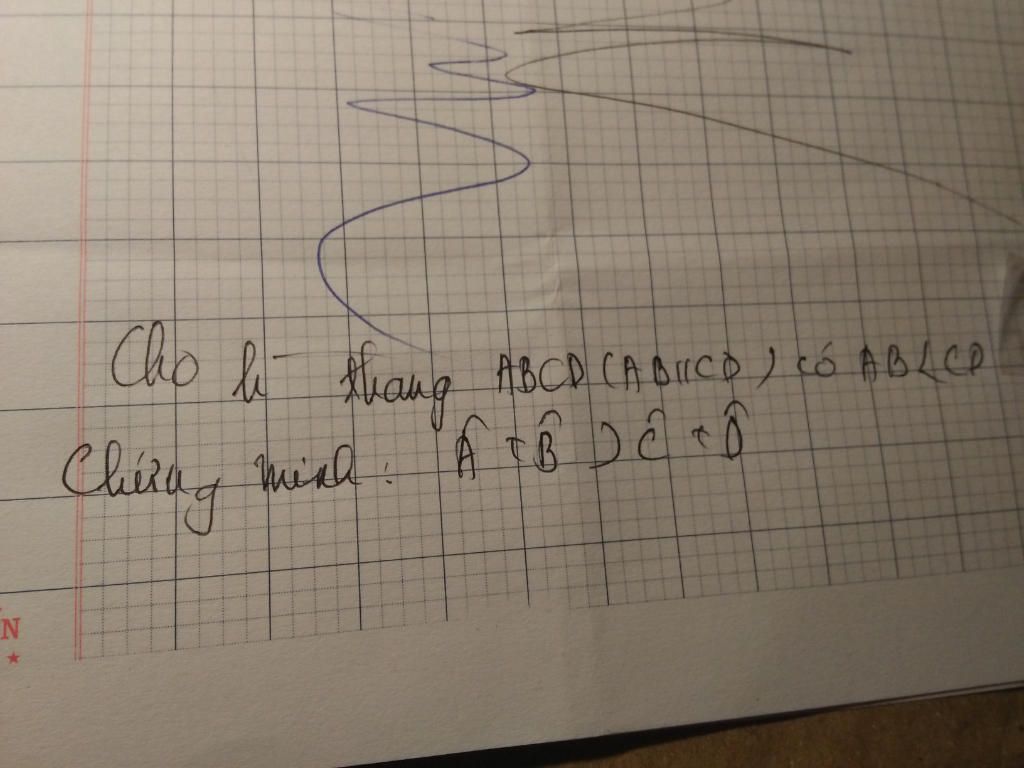 Cho h thang ABCD (AB//CD) có AB<CD
Chứng minh: Â + B̂ > Ĉ + D̂
N